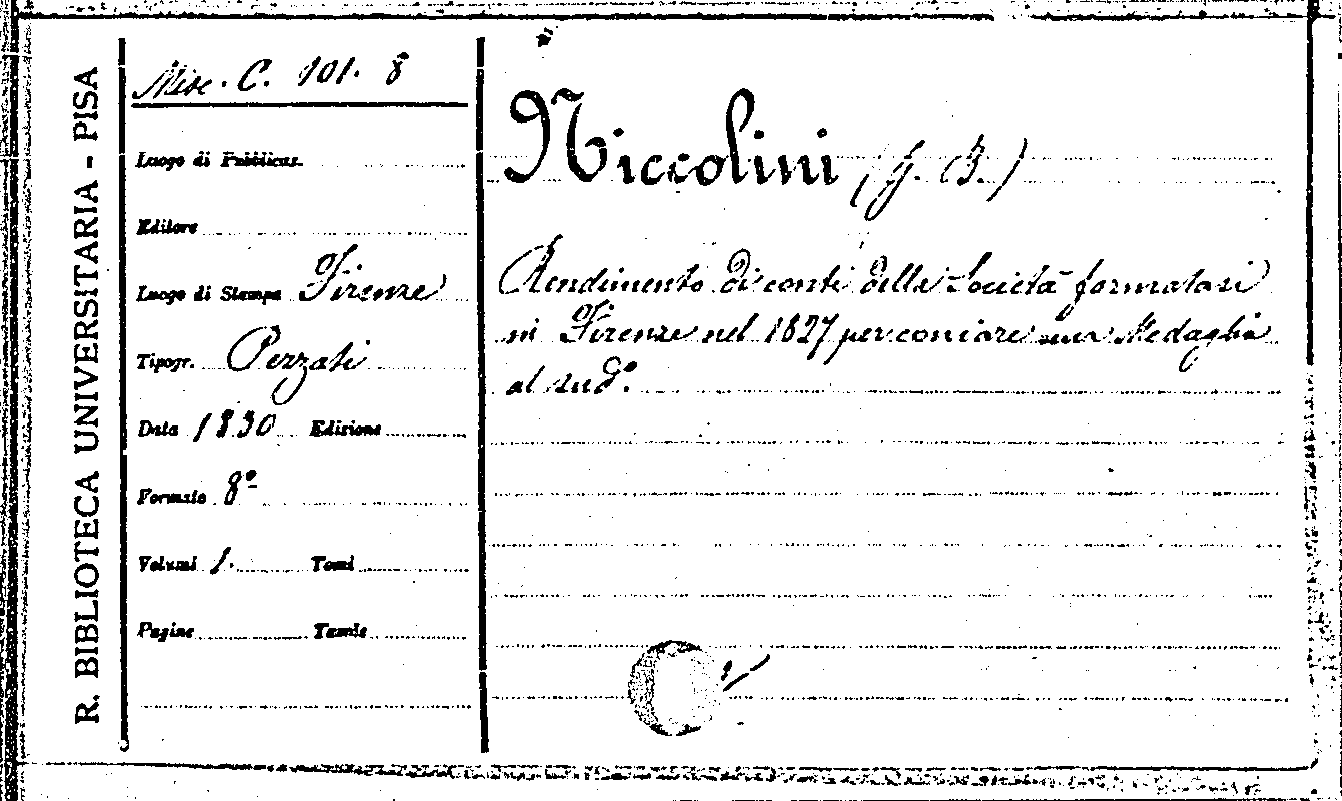 R. BIBLIOTECA UNIVERSITARIA - PISA
Misc. C. 101. 8
Luogo di Pubblicaz.
Editore
Luogo di Stampa Firenze
Tipogr. Pezzati
Data 1830 Edizione
Formato 8º
Volumi 1. Tomi
Pagine Tavole
Niccolini (G. B.)
Rendimento di conti della Società formatasi
in Firenze nel 1827 per coniare una Medaglia
al sudº.